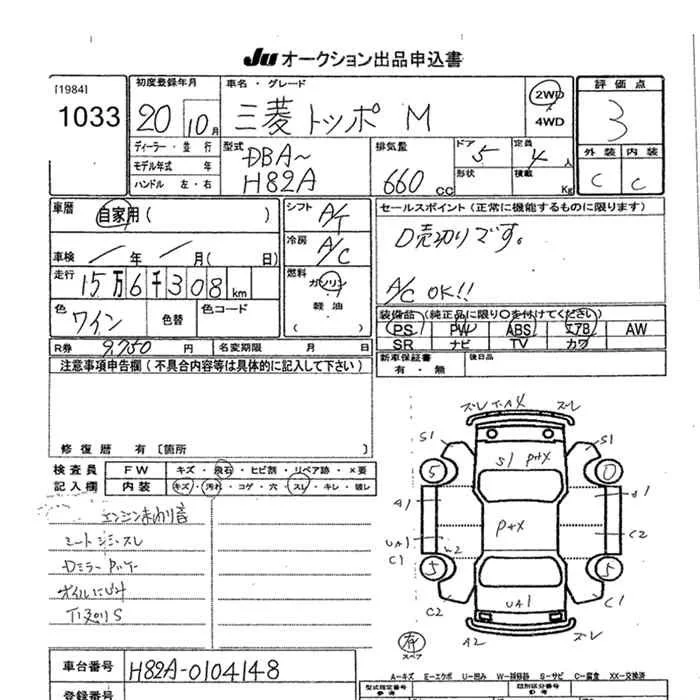 JU オークション出品申込書
[1984]
1033
初度登録年月
20 10 月
車名・グレード
三菱 トッポ M
2WD
4WD
評価点
3
ディーラー・並行
モデル年式 年
ハンドル 左・右
型式
DBA~
H82A
排気量
660 CC
ドア
5
形状
定員
4 人
積載 Kg
外装 内装
C C
車歴
自家用( )
車検 / 年 / 月( 日)
走行
15万6千308 km
色
ワイン
色替
色コード
シフト
A/T
冷房
A/C
燃料
ガソリン
軽油
( )
セールスポイント(正常に機能するものに限ります)
D売切りです。
A/C OK!!
装備品(純正品に限り○を付けてください)
PS PW ABS エアB AW
SR ナビ TV カワ
R券 9,750 円 名変期限 月 日
新車保証書
有・無
後日品
注意事項申告欄(不具合内容等は具体的に記入して下さい)
修復歴 有〔箇所 〕
検査員 FW キズ・飛石・ヒビ割・リペア跡・×要
記入欄 内装 キズ・汚れ・コゲ・穴・スレ・キレ・破レ
シートシミ・スレ
オイルにじみ
ズレ ズレ
S1 S1
S1 P+X
5 0
A1
P+X
UA1
C1
W2
C2
5 5
UA1
C2 C1
A2 ズレ
スペア
A-キズ E-エクボ U-凹み W-補修跡 S-サビ C-腐食 XX-交換済
車台番号 H82A-0104148
型式指定番号
類別区分番号
登録番号